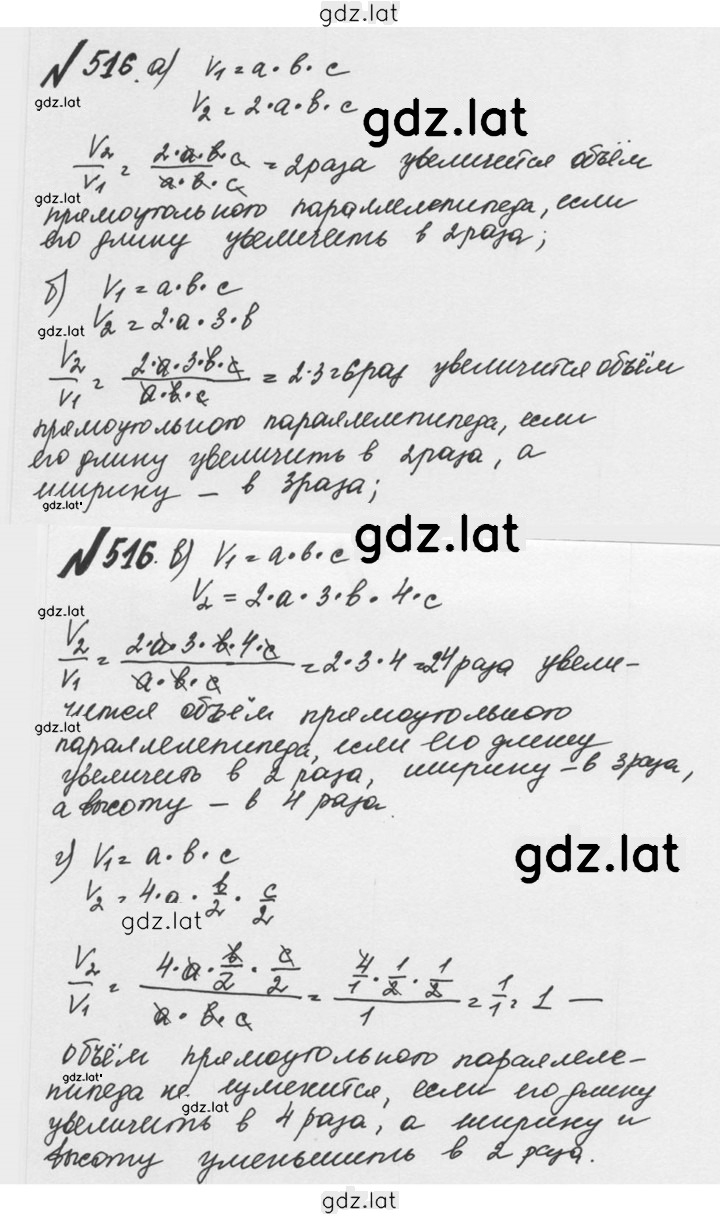 gdz.lat
№516. а) V₁ = a·b·c
gdz.lat
V₂ = 2·a·b·c
gdz.lat
V₂/V₁ = 2·a·b·c/a·b·c = 2 раза увеличится объём
gdz.lat
прямоугольного параллелепипеда, если
его длину увеличить в 2 раза;
б) V₁ = a·b·c
gdz.lat
V₂ = 2·a·3·b
V₂/V₁ = 2·a·3·b·c/a·b·c = 2·3=6 раз увеличится объём
прямоугольного параллелепипеда, если
его длину увеличить в 2 раза, а
ширину – в 3 раза;
gdz.lat
№516. в) V₁ = a·b·c
gdz.lat
V₂ = 2·a·3·b·4·c
gdz.lat
V₂/V₁ = 2·a·3·b·4·c/a·b·c = 2·3·4 = 24 раза увели-
чится объём прямоугольного
gdz.lat
параллелепипеда, если его длину
увеличить в 2 раза, ширину – в 3 раза,
а высоту – в 4 раза.
г) V₁ = a·b·c
gdz.lat
V₂ = 4·a·b/2·c/2
gdz.lat
V₂/V₁ = 4·a·b/2·c/2/a·b·c = 4/1·1/2·1/2/1 = 1/1 = 1 —
объём прямоугольного параллеле-
gdz.lat
пипеда не изменится, если его длину
gdz.lat
увеличить в 4 раза, а ширину и
высоту уменьшить в 2 раза.
gdz.lat